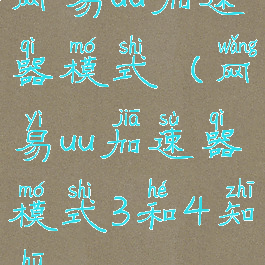 网易uu加速
qì mó shì wǎng
器模式(网
yì jiā sù qì
易uu加速器
mó shì hé zhī
模式3和4知
hū